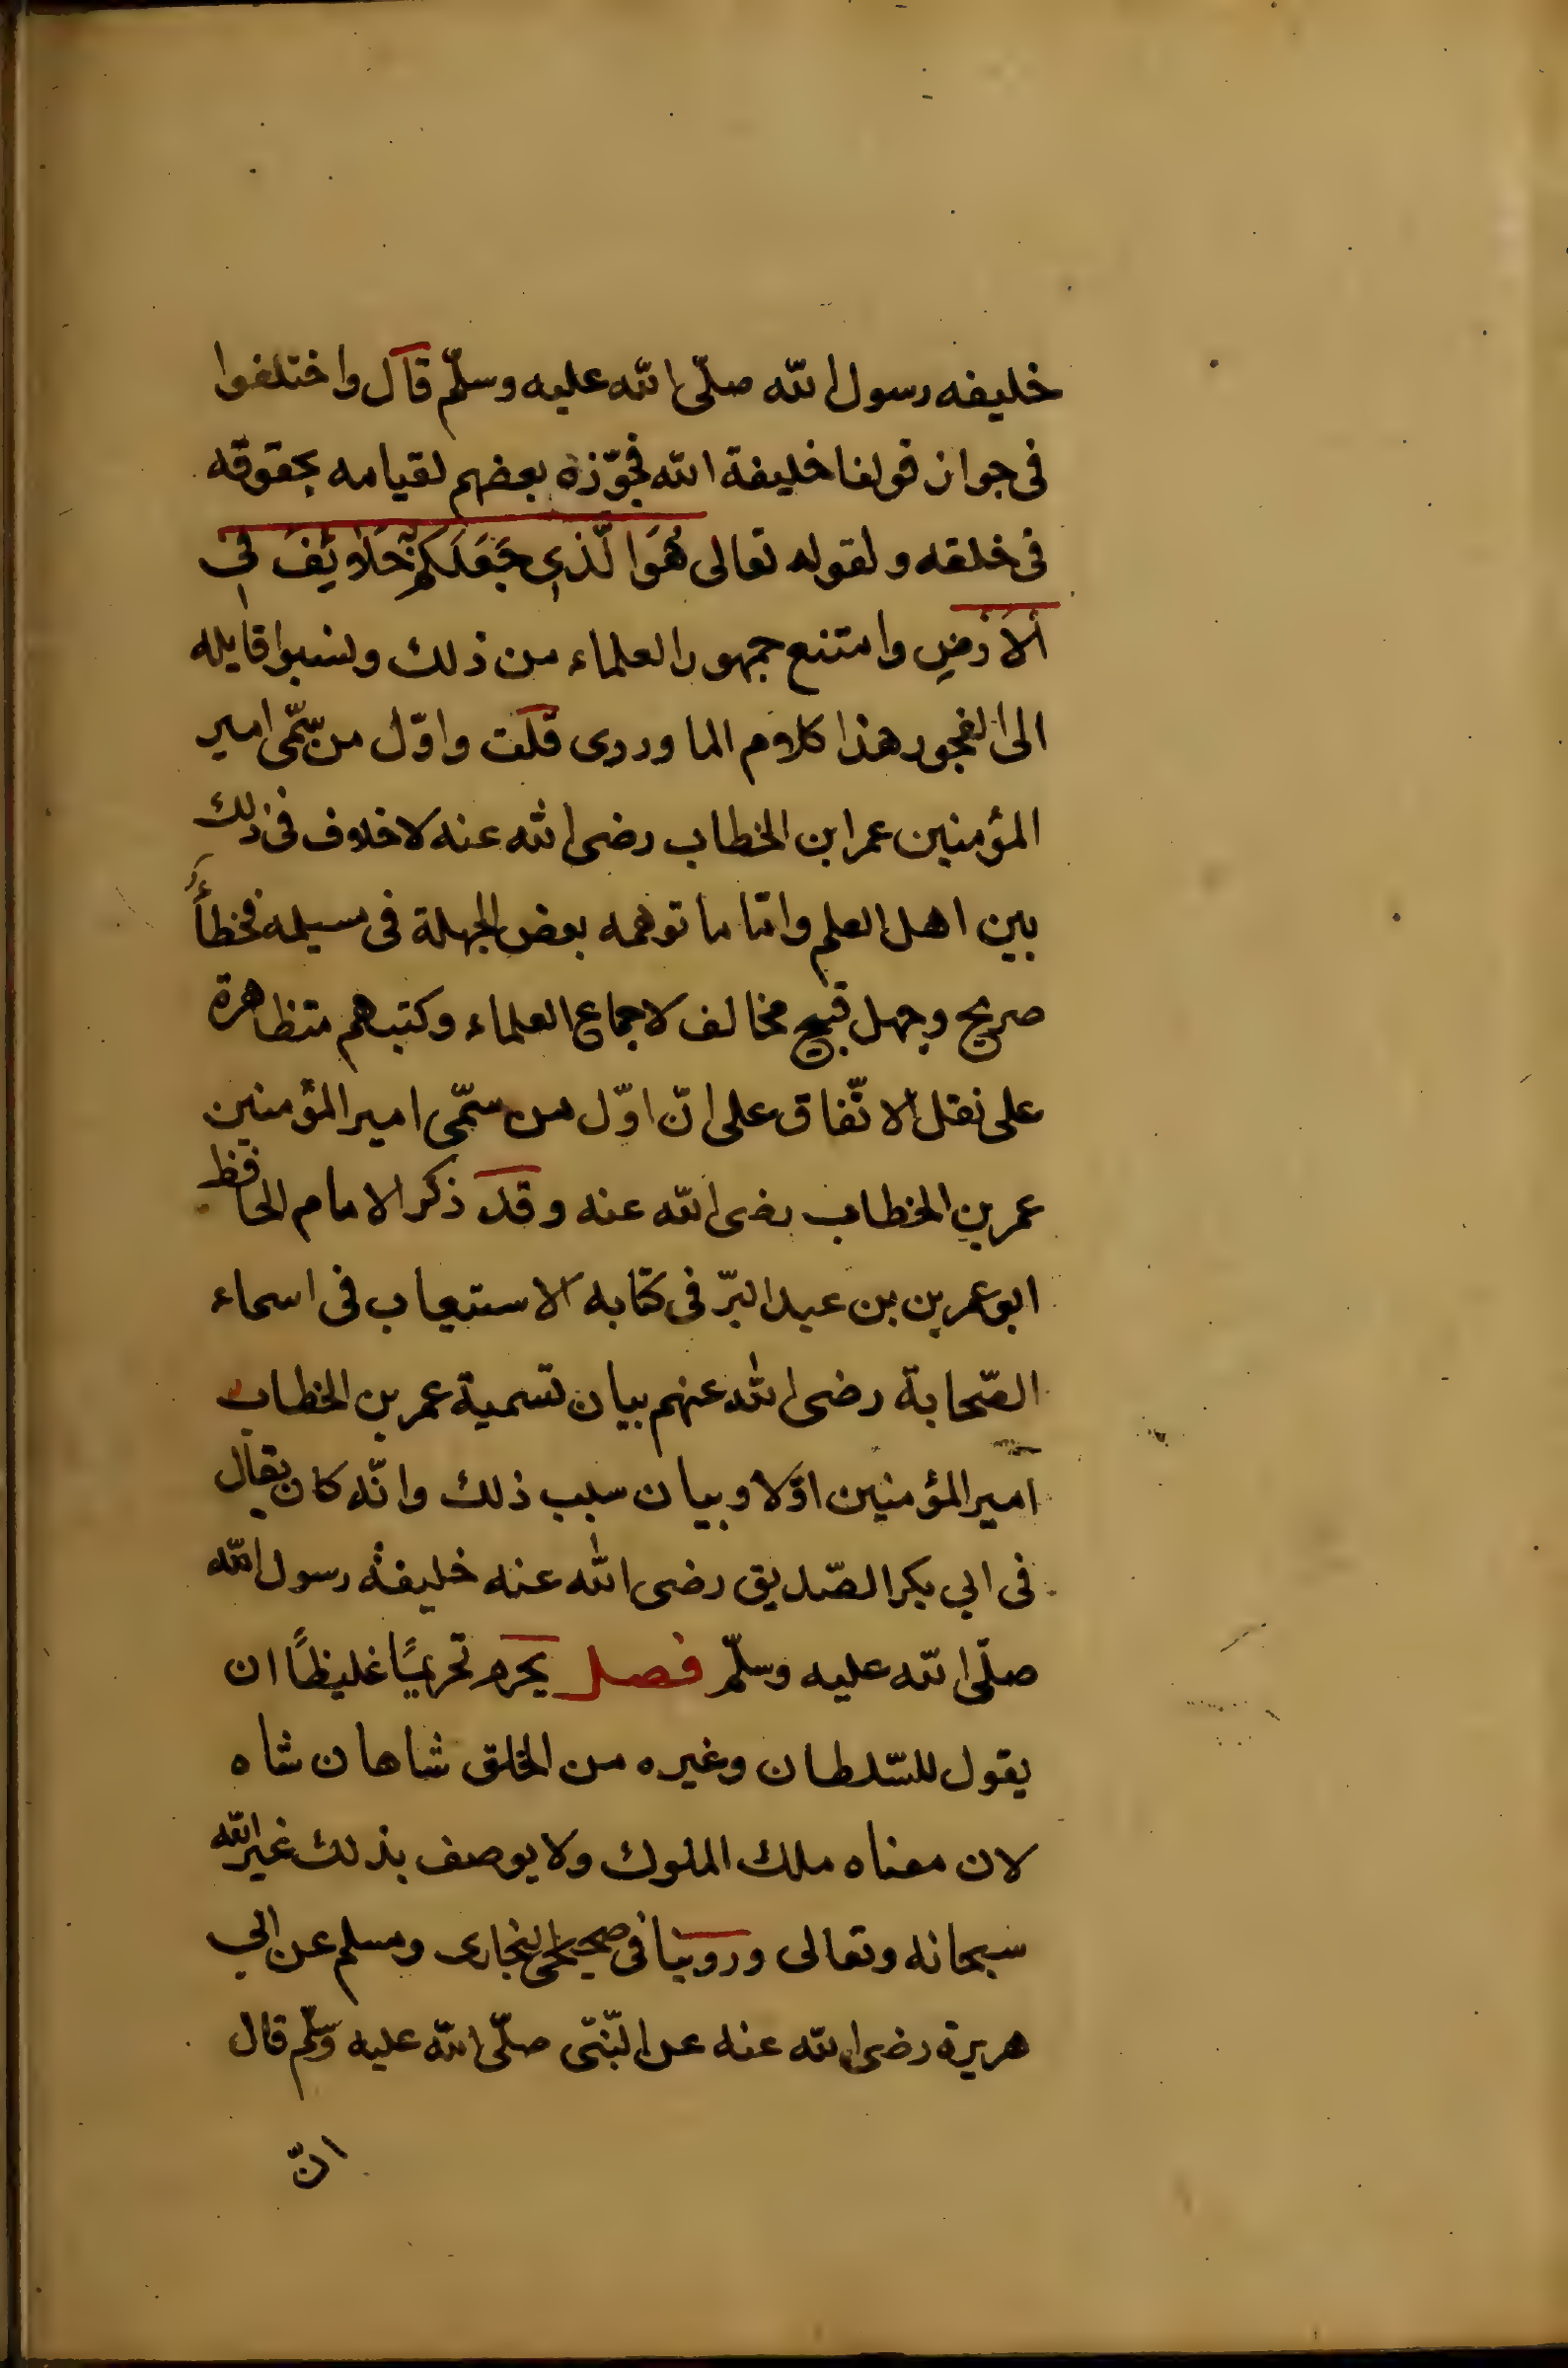 خليفه رسول الله صلّى الله عليه وسلّم قال واختلفوا
فى جواز قولنا خليفة الله فجوّزه بعضهم لقيامه بحقوقه
فى خلقه ولقوله تعالى هُوَ الَّذى جَعَلَكم خَلَايِفَ فِى
اَلْاَرْضِ وامتنع جمهور العلماء من ذلك ونسبوا قايله
الى الفجور هذا كلام الماوردى قلت واوّل من سمّى امير
المؤمنين عمر ابن الخطاب رضى الله عنه لا خلاف فى ذلك
بين اهل العلم وامّا ما توهمه بعض الجهلة فى مسيلمه فخطأ
صريح وجهل قبيح مخالف لاجماع العلماء وكتبهم متظاهرة
على نقل الاتّفاق على انّ اوّل من سمّى امير المؤمنين
عمر بن الخطاب رضى الله عنه وقد ذكر الامام الحافظ
ابو عمر بن بن عبد البرّ فى كتابه الاستيعاب فى اسماء
الصّحابة رضى الله عنهم بيان تسمية عمر بن الخطاب
امير المؤمنين اوّلا وبيان سبب ذلك وانّه كان يقال
فى ابي بكر الصّديق رضى الله عنه خليفة رسول الله
صلّى الله عليه وسلّم فصل يحرم تحريميًا غليظًا ان
يقول للسّلطان وغيره من الخلق شاهان شاه
لان معناه ملك الملوك ولا يوصف بذلك غير الله
سبحانه وتعالى وروينا فى صحيحى البخارى ومسلم عن ابي
هريرة رضى الله عنه عن النّبىّ صلّى الله عليه وسلّم قال
انّ